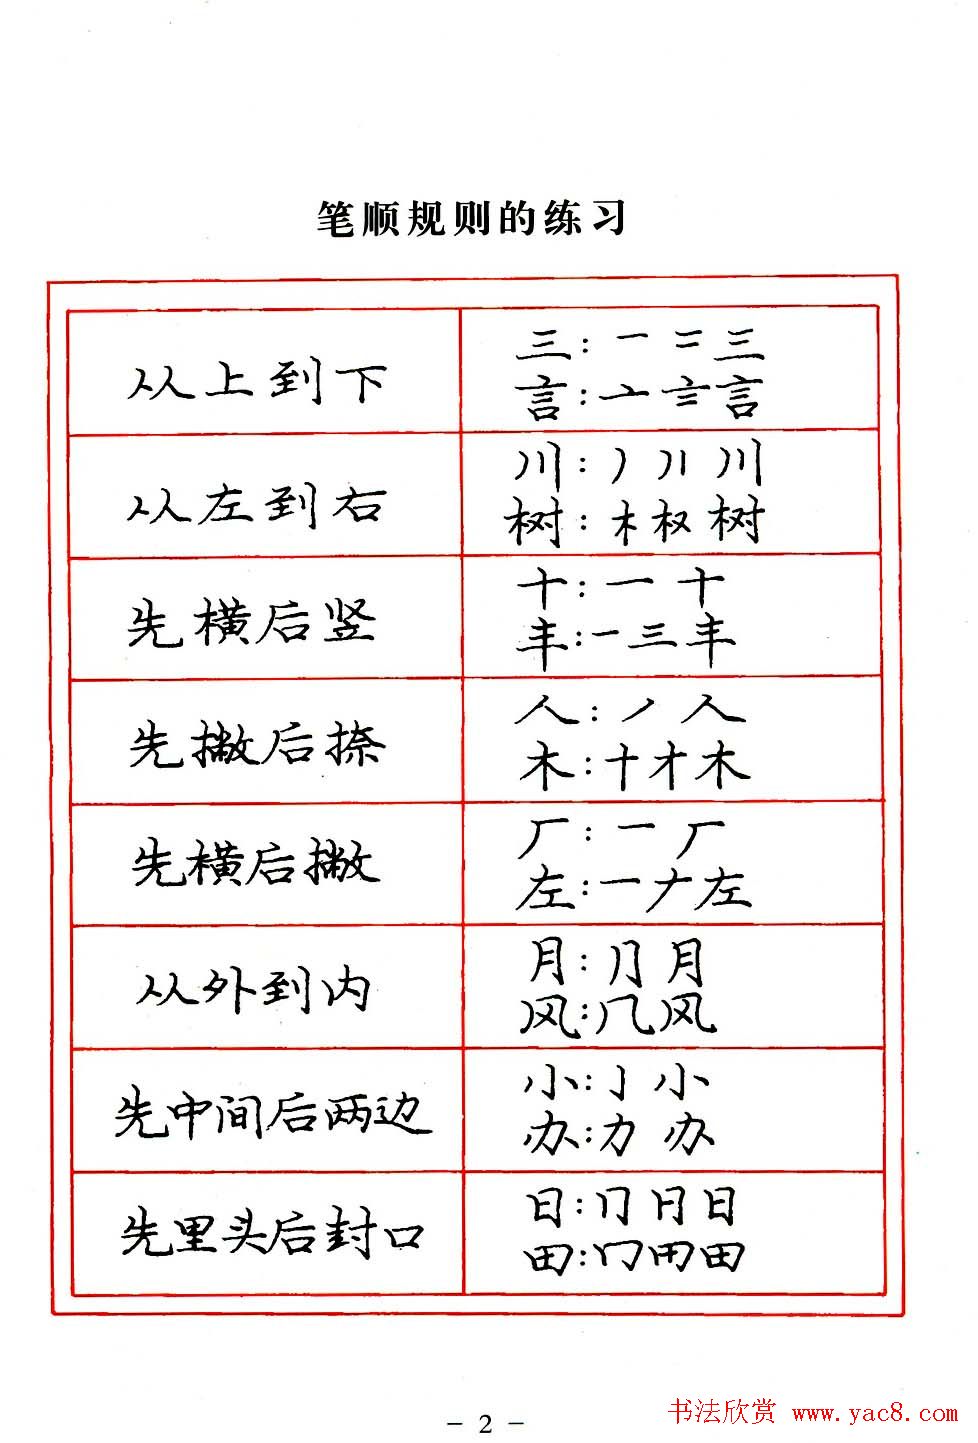 笔顺规则的练习
从上到下
三:一 二 三
言:亠 訁 言
从左到右
川:丿 丿丨 川
树:木 权 树
先横后竖
十:一 十
丰:一 三 丰
先撇后捺
人:丿 人
木:十 才 木
先横后撇
厂:一 厂
左:一 𠂇 左
从外到内
月:⺆ 月
风:几 风
先中间后两边
小:亅 小
办:力 办
先里头后封口
日:冂 日
田:冂 田
- 2 -
书法欣赏 www.yac8.com